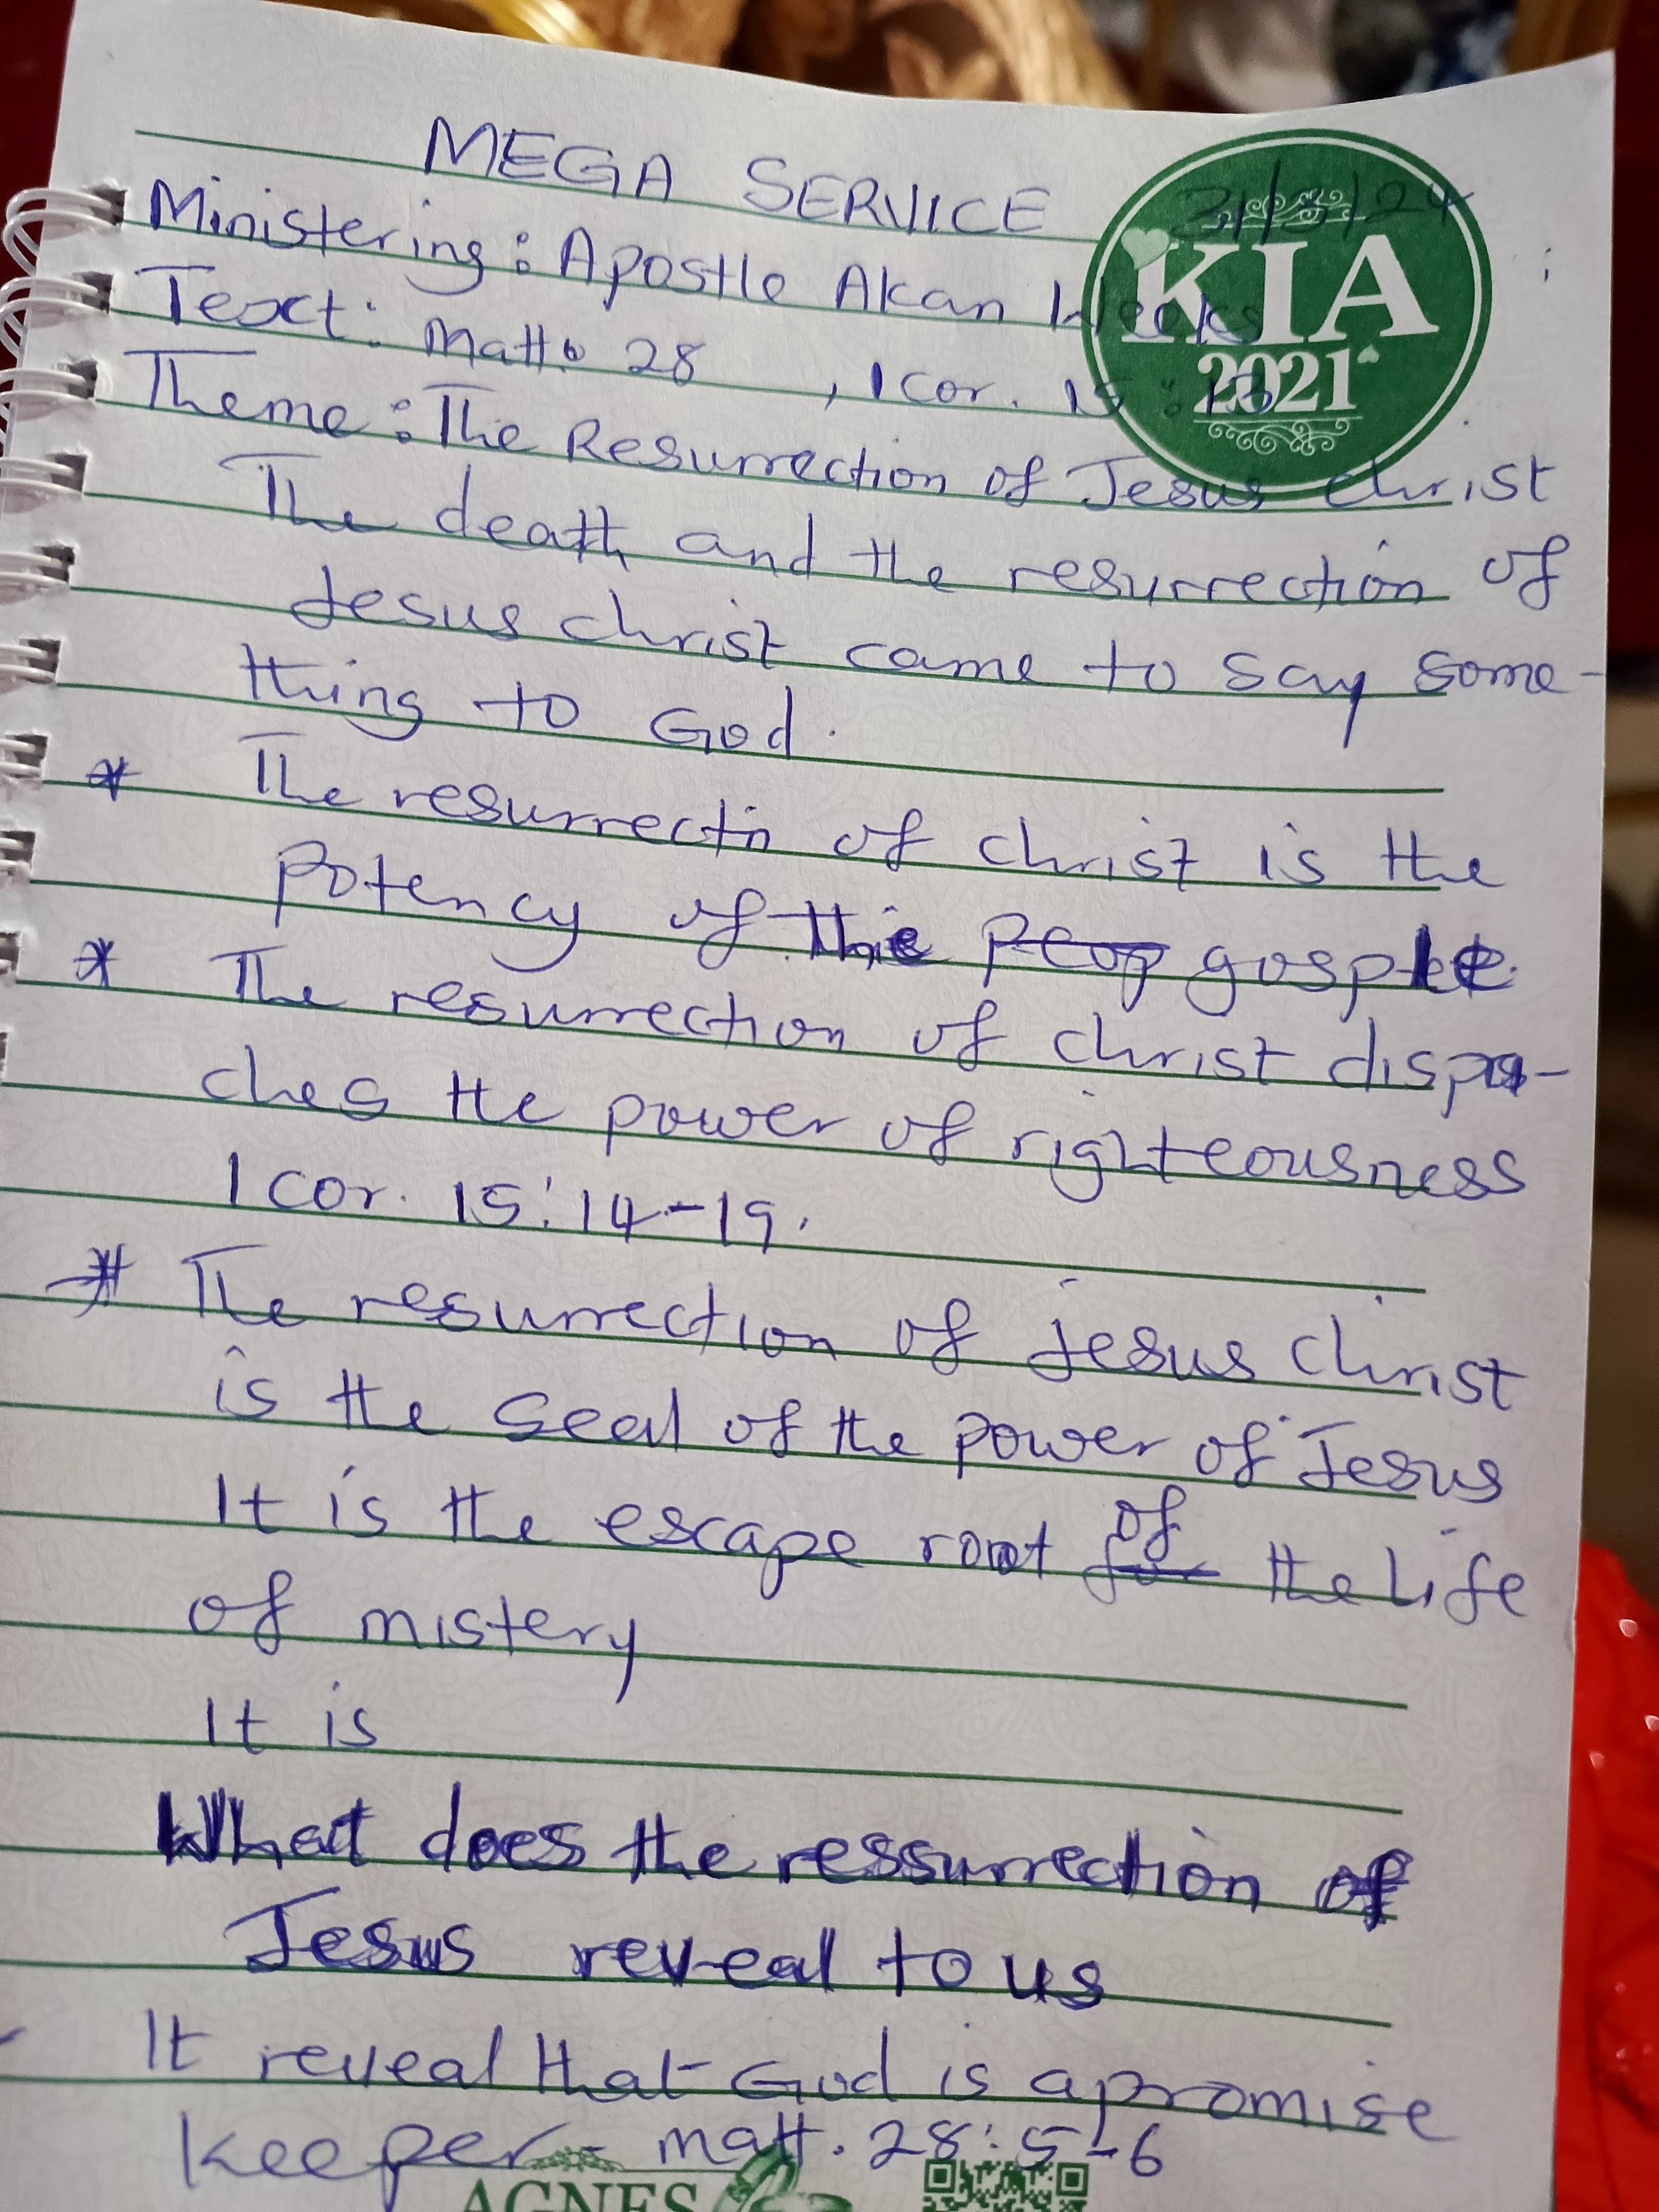 MEGA SERVICE 31/3/24
Ministering: Apostle Akan Weeks
KIA
2021
Text: Matt. 28 , 1 Cor. 15:13
Theme: The Resurrection of Jesus christ
The death and the resurrection of
Jesus christ came to say some-
thing to God.
* The resurrectn of christ is the
Potency of the gosple
* The resurrection of christ dispa-
ches the power of righteousness
1 Cor. 15:14-19.
* The resurrection of Jesus Christ
is the seal of the power of Jesus
It is the escape root of the Life
of mistery
It is
What does the ressurrection of
Jesus reveal to us
- It reveal that God is a promise
keeper - matt. 28:5-6
AGNES